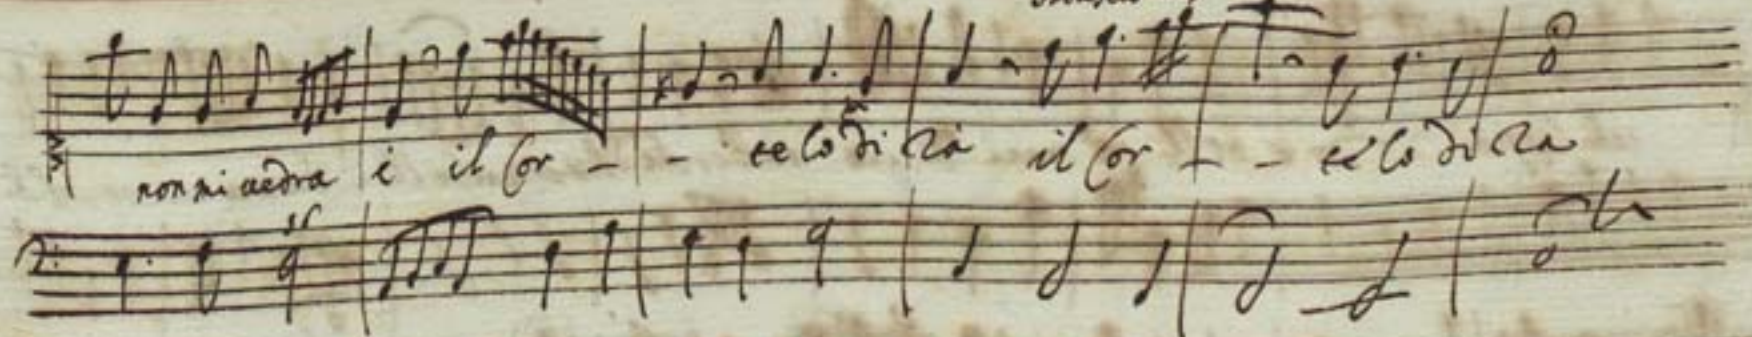 non mi vedra i il Cor - - te lo dirà il Cor - - te lo dira